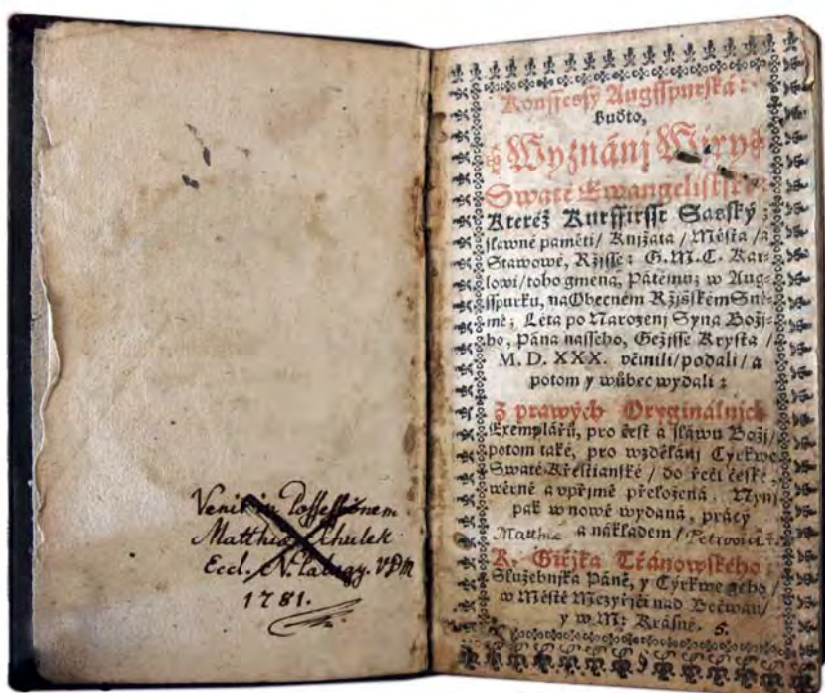 Venit in Possessionem
Matthiæ
Eccl. N. Palugy. VDM
1781.
Konffessý Augsspurská:
Budto,
Wyznánj Wjry
Swaté Ewangelitské:
Kteréž Kurffirsst Saský;
slawné paměti / Knjžata / Města / a
Stawowé, Ržjsse: G. M. C. Kar-
lowi / toho gména, Pátému; w Aug-
sspurku, na Obecném Ržjsském Sně-
mě; Léta po Narozenj Syna Božj-
ho, Pána nasseho, Gežjsse Krysta /
M. D. XXX. včinili / podali / a
potom y wůbec wydali:
Z prawých Oryginálnjch
Exemplářů, pro čest a sláwu Božj /
potom také, pro wzdělánj Cýrkwe
Swaté Křestianské / do řeči české,
wěrně a vpřjmě přeložená. Nynj
pak w nowě wydaná, prácý
Matthiæ a nákladem /
K. Giřjka Třánowského:
Služebnjka Páně, y Cýrkwe geho /
w Městě Mezyřjčj nad Bečwau /
y w M: Krásně. 6.